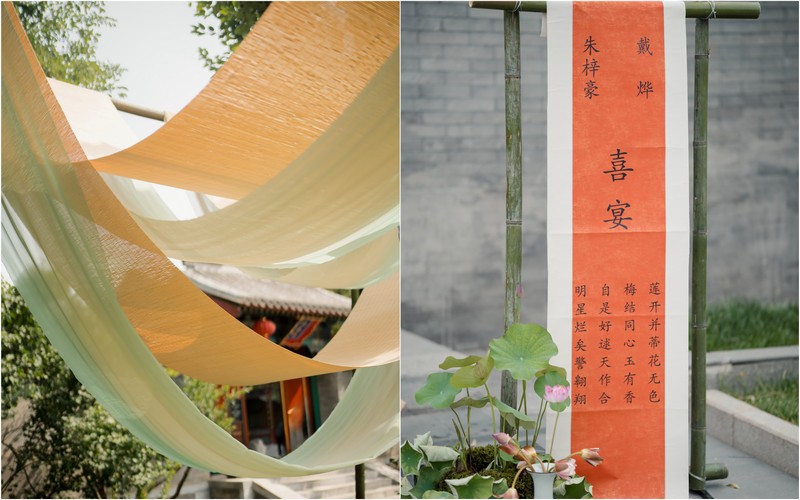 戴烨
朱梓豪
喜宴
莲开并蒂花无色
梅结同心玉有香
自是好逑天作合
明星烂矣警翱翔